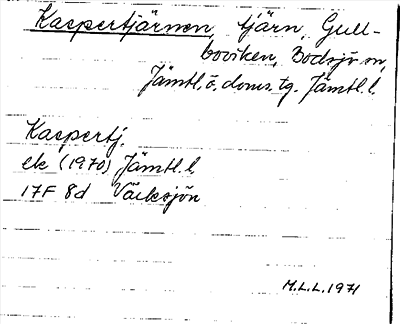 Kaspertjärnen, tjärn, Gull-
boviken, Bodsjö sn,
Jämtl. ö. doms. tg. Jämtl. l.
Kaspertj.
ek (1970) Jämtl. l.
17F 8d Växsjön
M.L.L. 1971